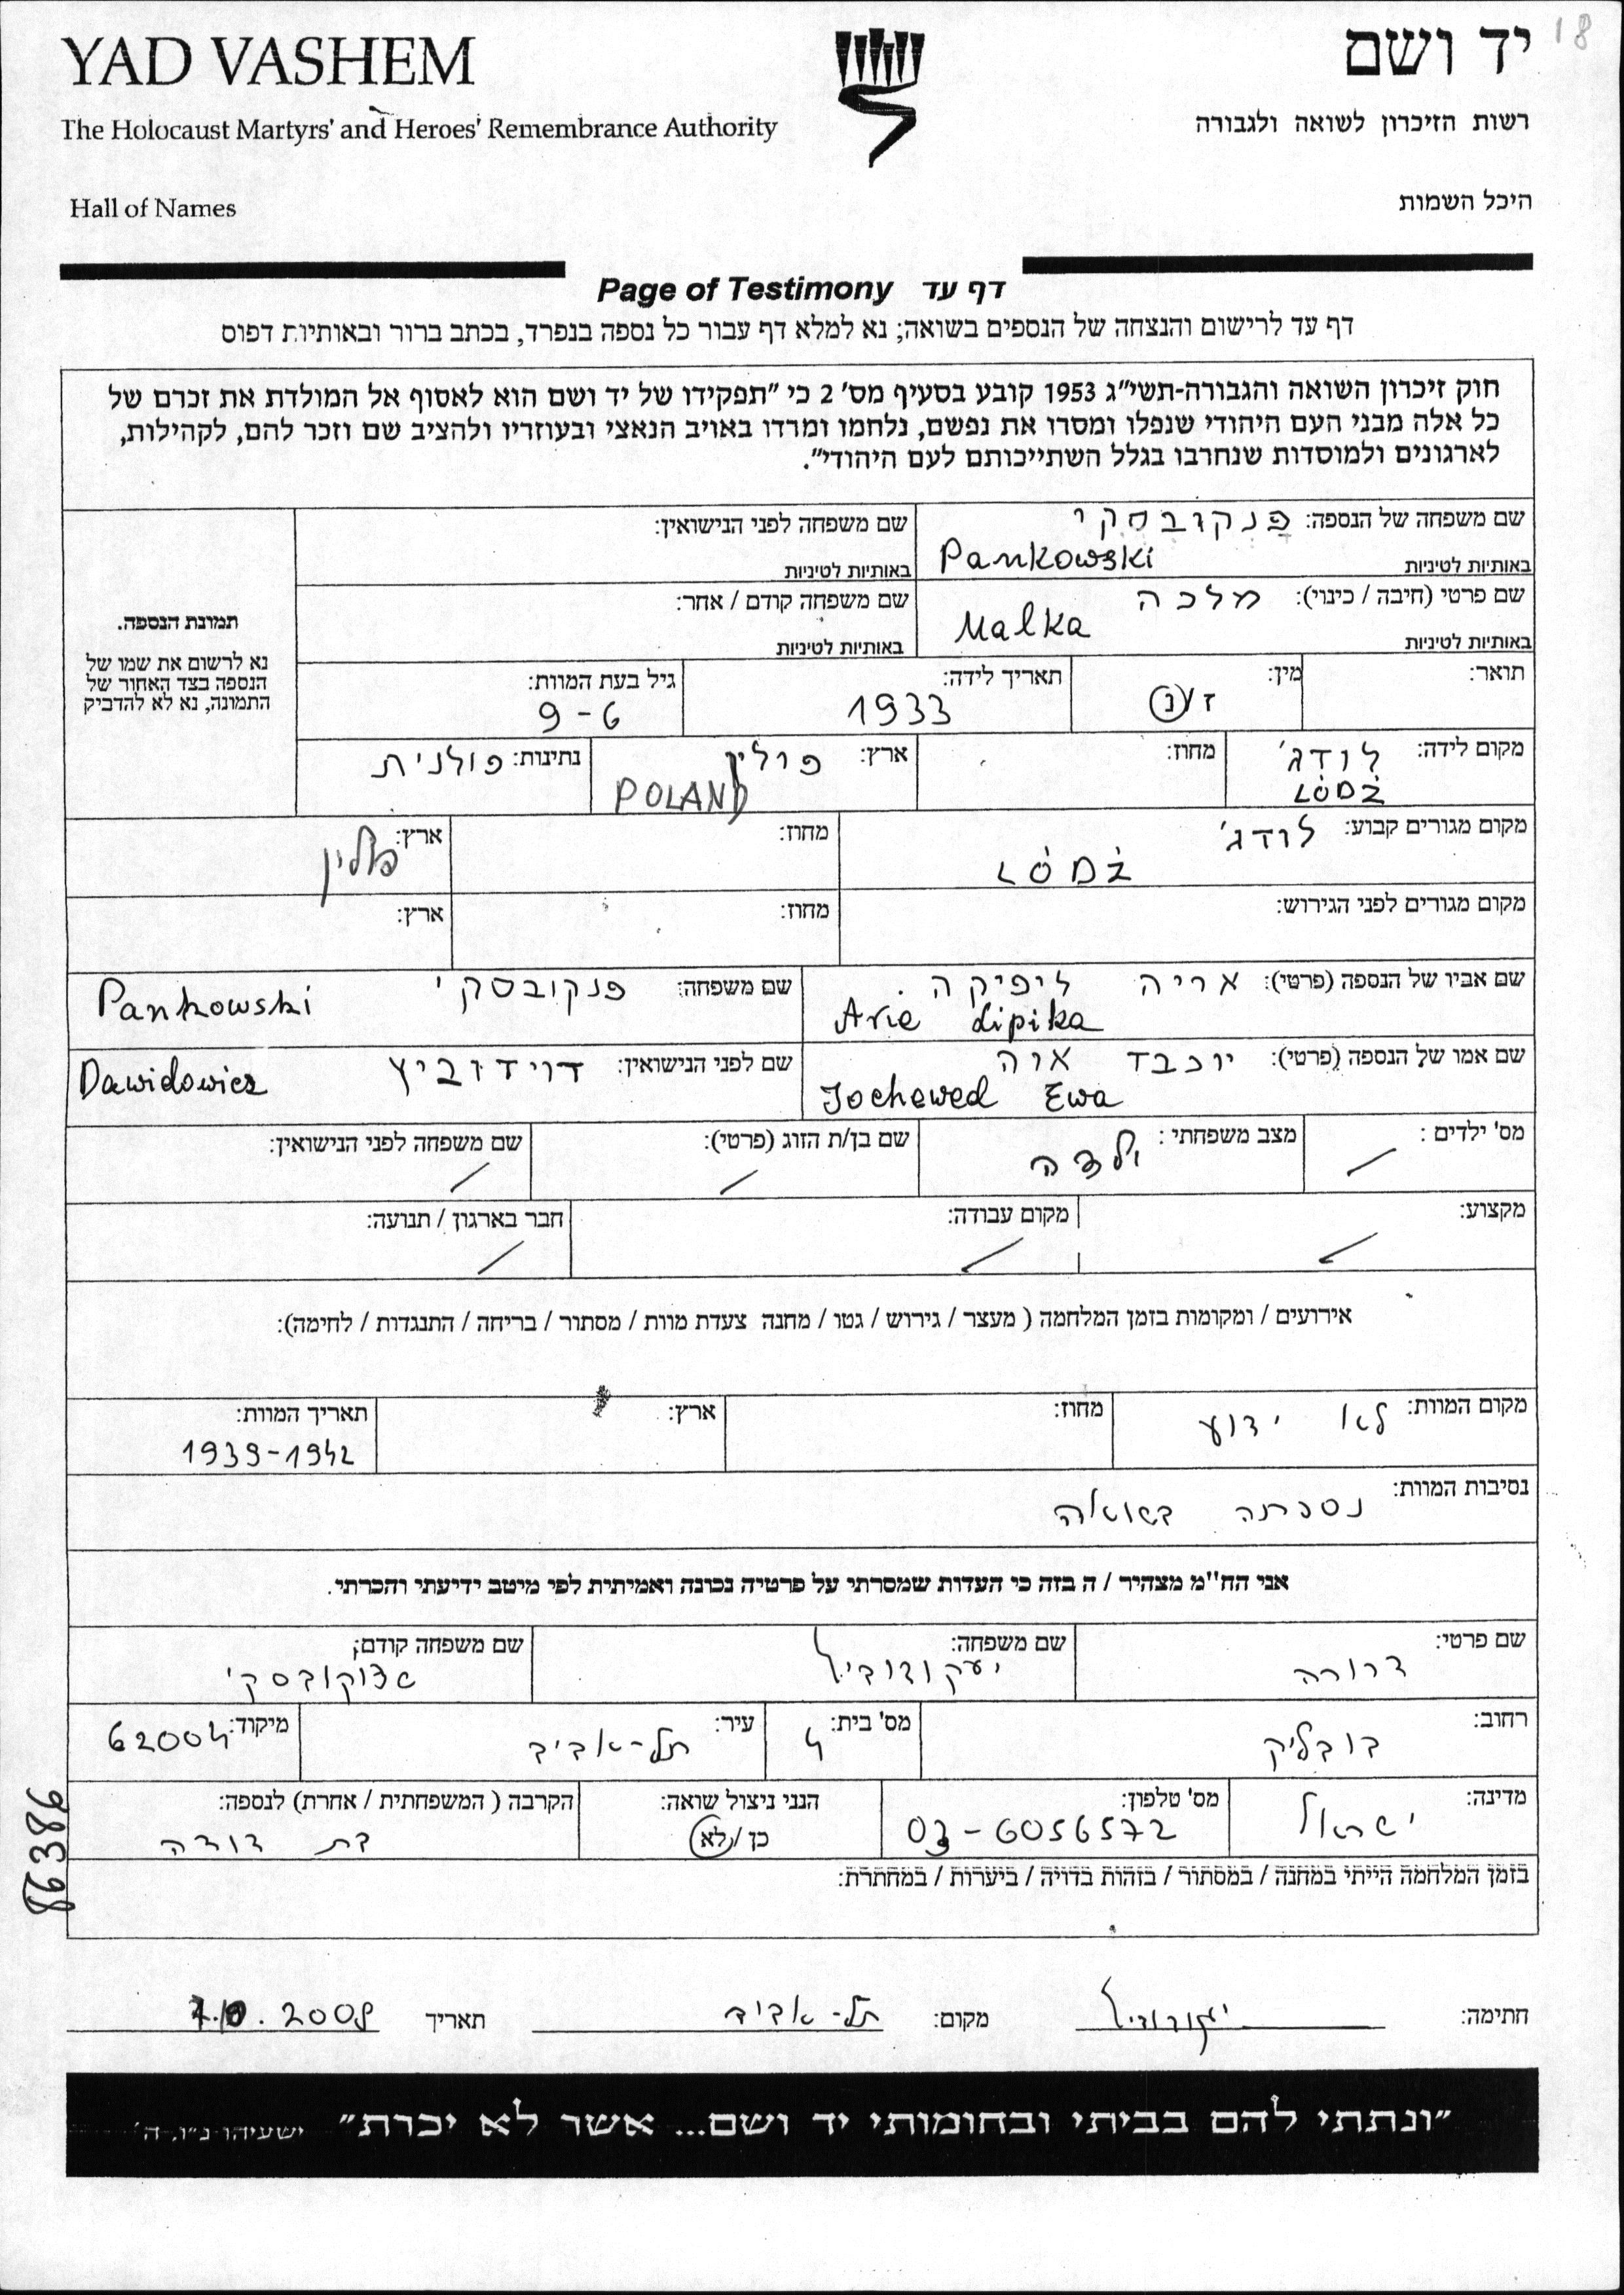 YAD VASHEM יד ושם 18
The Holocaust Martyrs' and Heroes' Remembrance Authority רשות הזיכרון לשואה ולגבורה
Hall of Names היכל השמות
Page of Testimony דף עד
דף עד לרישום והנצחה של הנספים בשואה; נא למלא דף עבור כל נספה בנפרד, בכתב ברור ובאותיות דפוס
חוק זיכרון השואה והגבורה-תשי"ג 1953 קובע בסעיף מס' 2 כי "תפקידו של יד ושם הוא לאסוף אל המולדת את זכרם של
כל אלה מבני העם היהודי שנפלו ומסרו את נפשם, נלחמו ומרדו באויב הנאצי ובעוזריו ולהציב שם וזכר להם, לקהילות,
לארגונים ולמוסדות שנחרבו בגלל השתייכותם לעם היהודי".
שם משפחה של הנספה: פנקובסקי שם משפחה לפני הנישואין:
באותיות לטיניות Pankowski באותיות לטיניות
שם פרטי (חיבה / כינוי): מלכה שם משפחה קודם / אחר:
באותיות לטיניות Malka באותיות לטיניות
תמונת הנספה.
נא לרשום את שמו של
הנספה בצד האחור של
התמונה, נא לא להדביק
תואר: מין: ז / נ תאריך לידה: 1933 גיל בעת המוות: 9-6
מקום לידה: לודג' מחוז: ארץ: פולין נתינות: פולנית
LÓDŻ POLAND
מקום מגורים קבוע: לודג' מחוז: ארץ: פולין
LÓDŻ
מקום מגורים לפני הגירוש: מחוז: ארץ:
שם אביו של הנספה (פרטי): אריה ליפיקה שם משפחה: פנקובסקי
Arie Lipika Pankowski
שם אמו של הנספה (פרטי): יוכבד אוה שם לפני הנישואין: דוידוביץ
Jochewed Ewa Dawidowicz
מס' ילדים : / מצב משפחתי : ילדה שם בן/ת הזוג (פרטי): / שם משפחה לפני הנישואין: /
מקצוע: / מקום עבודה: / חבר בארגון / תנועה: /
אירועים / ומקומות בזמן המלחמה ( מעצר / גירוש / גטו / מחנה צעדת מוות / מסתור / בריחה / התנגדות / לחימה):
מקום המוות: לא ידוע מחוז: ארץ: תאריך המוות: 1939-1942
נסיבות המוות: נספתה בשואה
אני הח"מ מצהיר / ה בזה כי העדות שמסרתי על פרטיה נכונה ואמיתית לפי מיטב ידיעתי והכרתי.
שם פרטי: דרורה שם משפחה: יעקודוביץ שם משפחה קודם:
רחוב: בובליק מס' בית: 4 עיר: תל-אביב מיקוד: 62004
מדינה: ישראל מס' טלפון: 03-6056572 הנני ניצול שואה: כן / לא הקרבה ( המשפחתית / אחרת) לנספה: בת דודה
בזמן המלחמה הייתי במחנה / במסתור / בזהות בדויה / ביערות / במחתרת:
86386
חתימה: מקום: תל-אביב תאריך
"ונתתי להם בביתי ובחומותי יד ושם... אשר לא יכרת" ישעיהו נ"ו, ה'